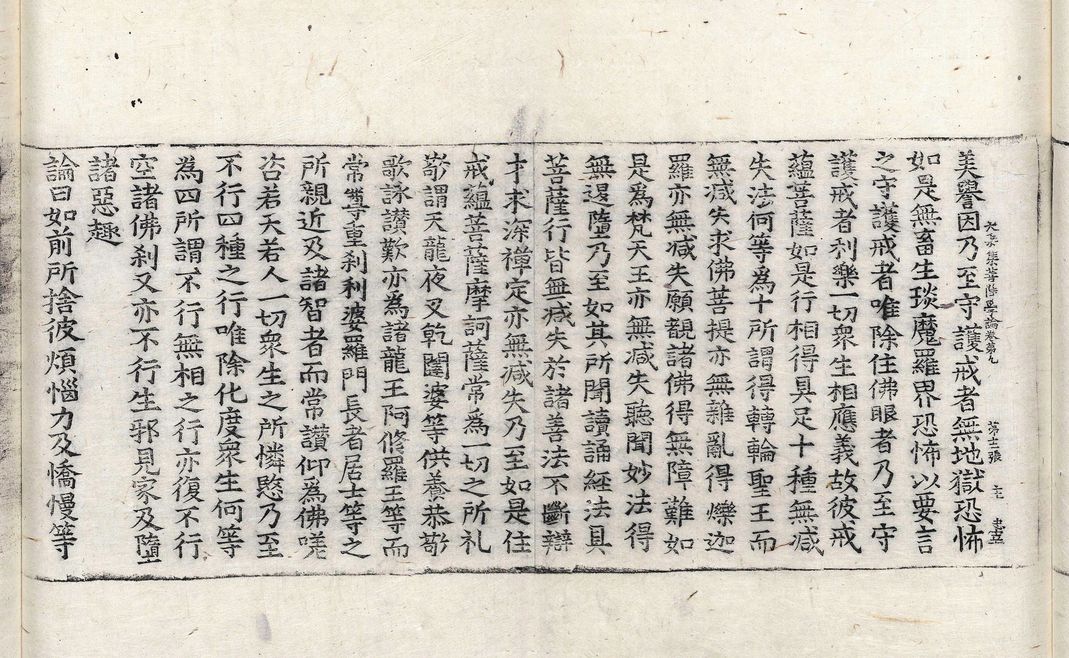 美譽因乃至守護戒者無地獄恐怖
大乘集菩薩學論卷第九 第十二張 主 畫
如是無畜生琰魔羅界恐怖以要言
之守護戒者唯除住佛眼者乃至守
護戒者利樂一切衆生相應義故彼戒
蘊菩薩如是行相得具足十種無减
失法何等爲十所謂得轉輪聖王而
無减失求佛菩提亦無雜亂得爍迦
羅亦無减失願覩諸佛得無障難如
是爲梵天王亦無减失聽聞妙法得
無退墮乃至如其所聞讀誦經法具
菩薩行皆無减失於諸善法不斷辯
才求深禪定亦無减失乃至如是住
戒蘊菩薩摩訶薩常爲一切之所礼
敬謂天龍夜叉乾闥婆等供養恭敬
歌詠讃歎亦為諸龍王阿修羅王等而
常尊重刹利婆羅門長者居士等之
所親近及諸智者而常讃仰爲佛嗟
咨若天若人一切衆生之所憐愍乃至
不行四種之行唯除化度衆生何等
為四所謂不行無相之行亦復不行
空諸佛刹又亦不行生邪見家及墮
諸惡趣
論曰如前所捨彼煩惱力及憍慢等